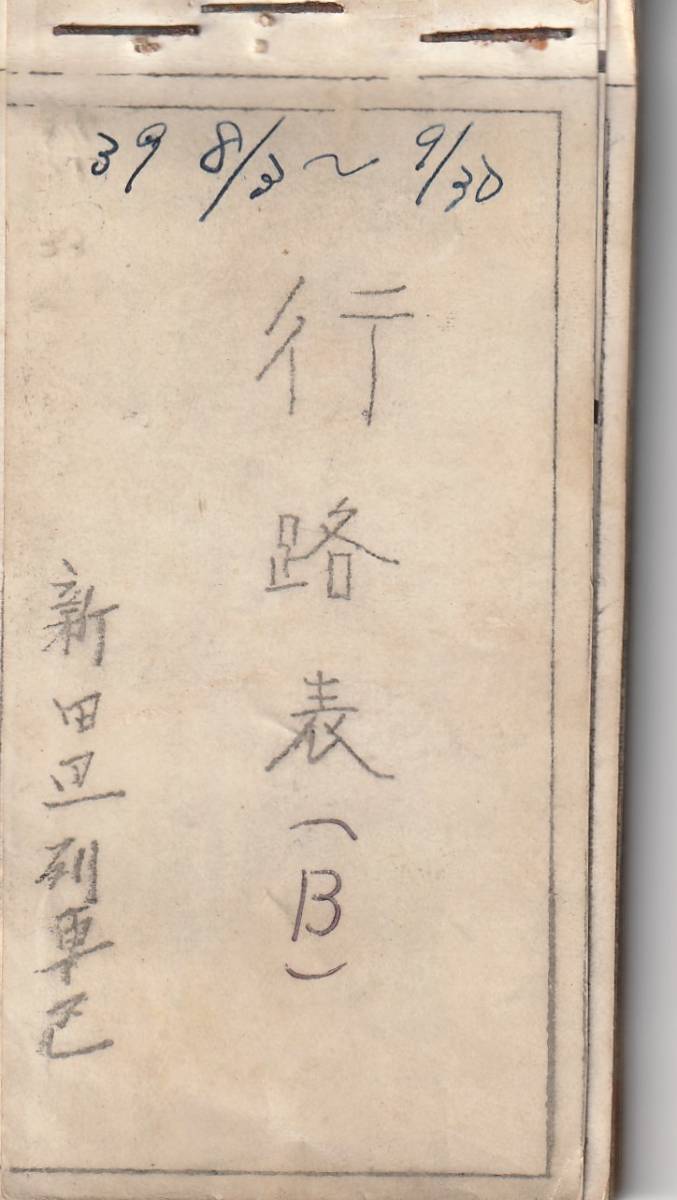 39 8/3～9/30
行路表(B)
新田辺列車区